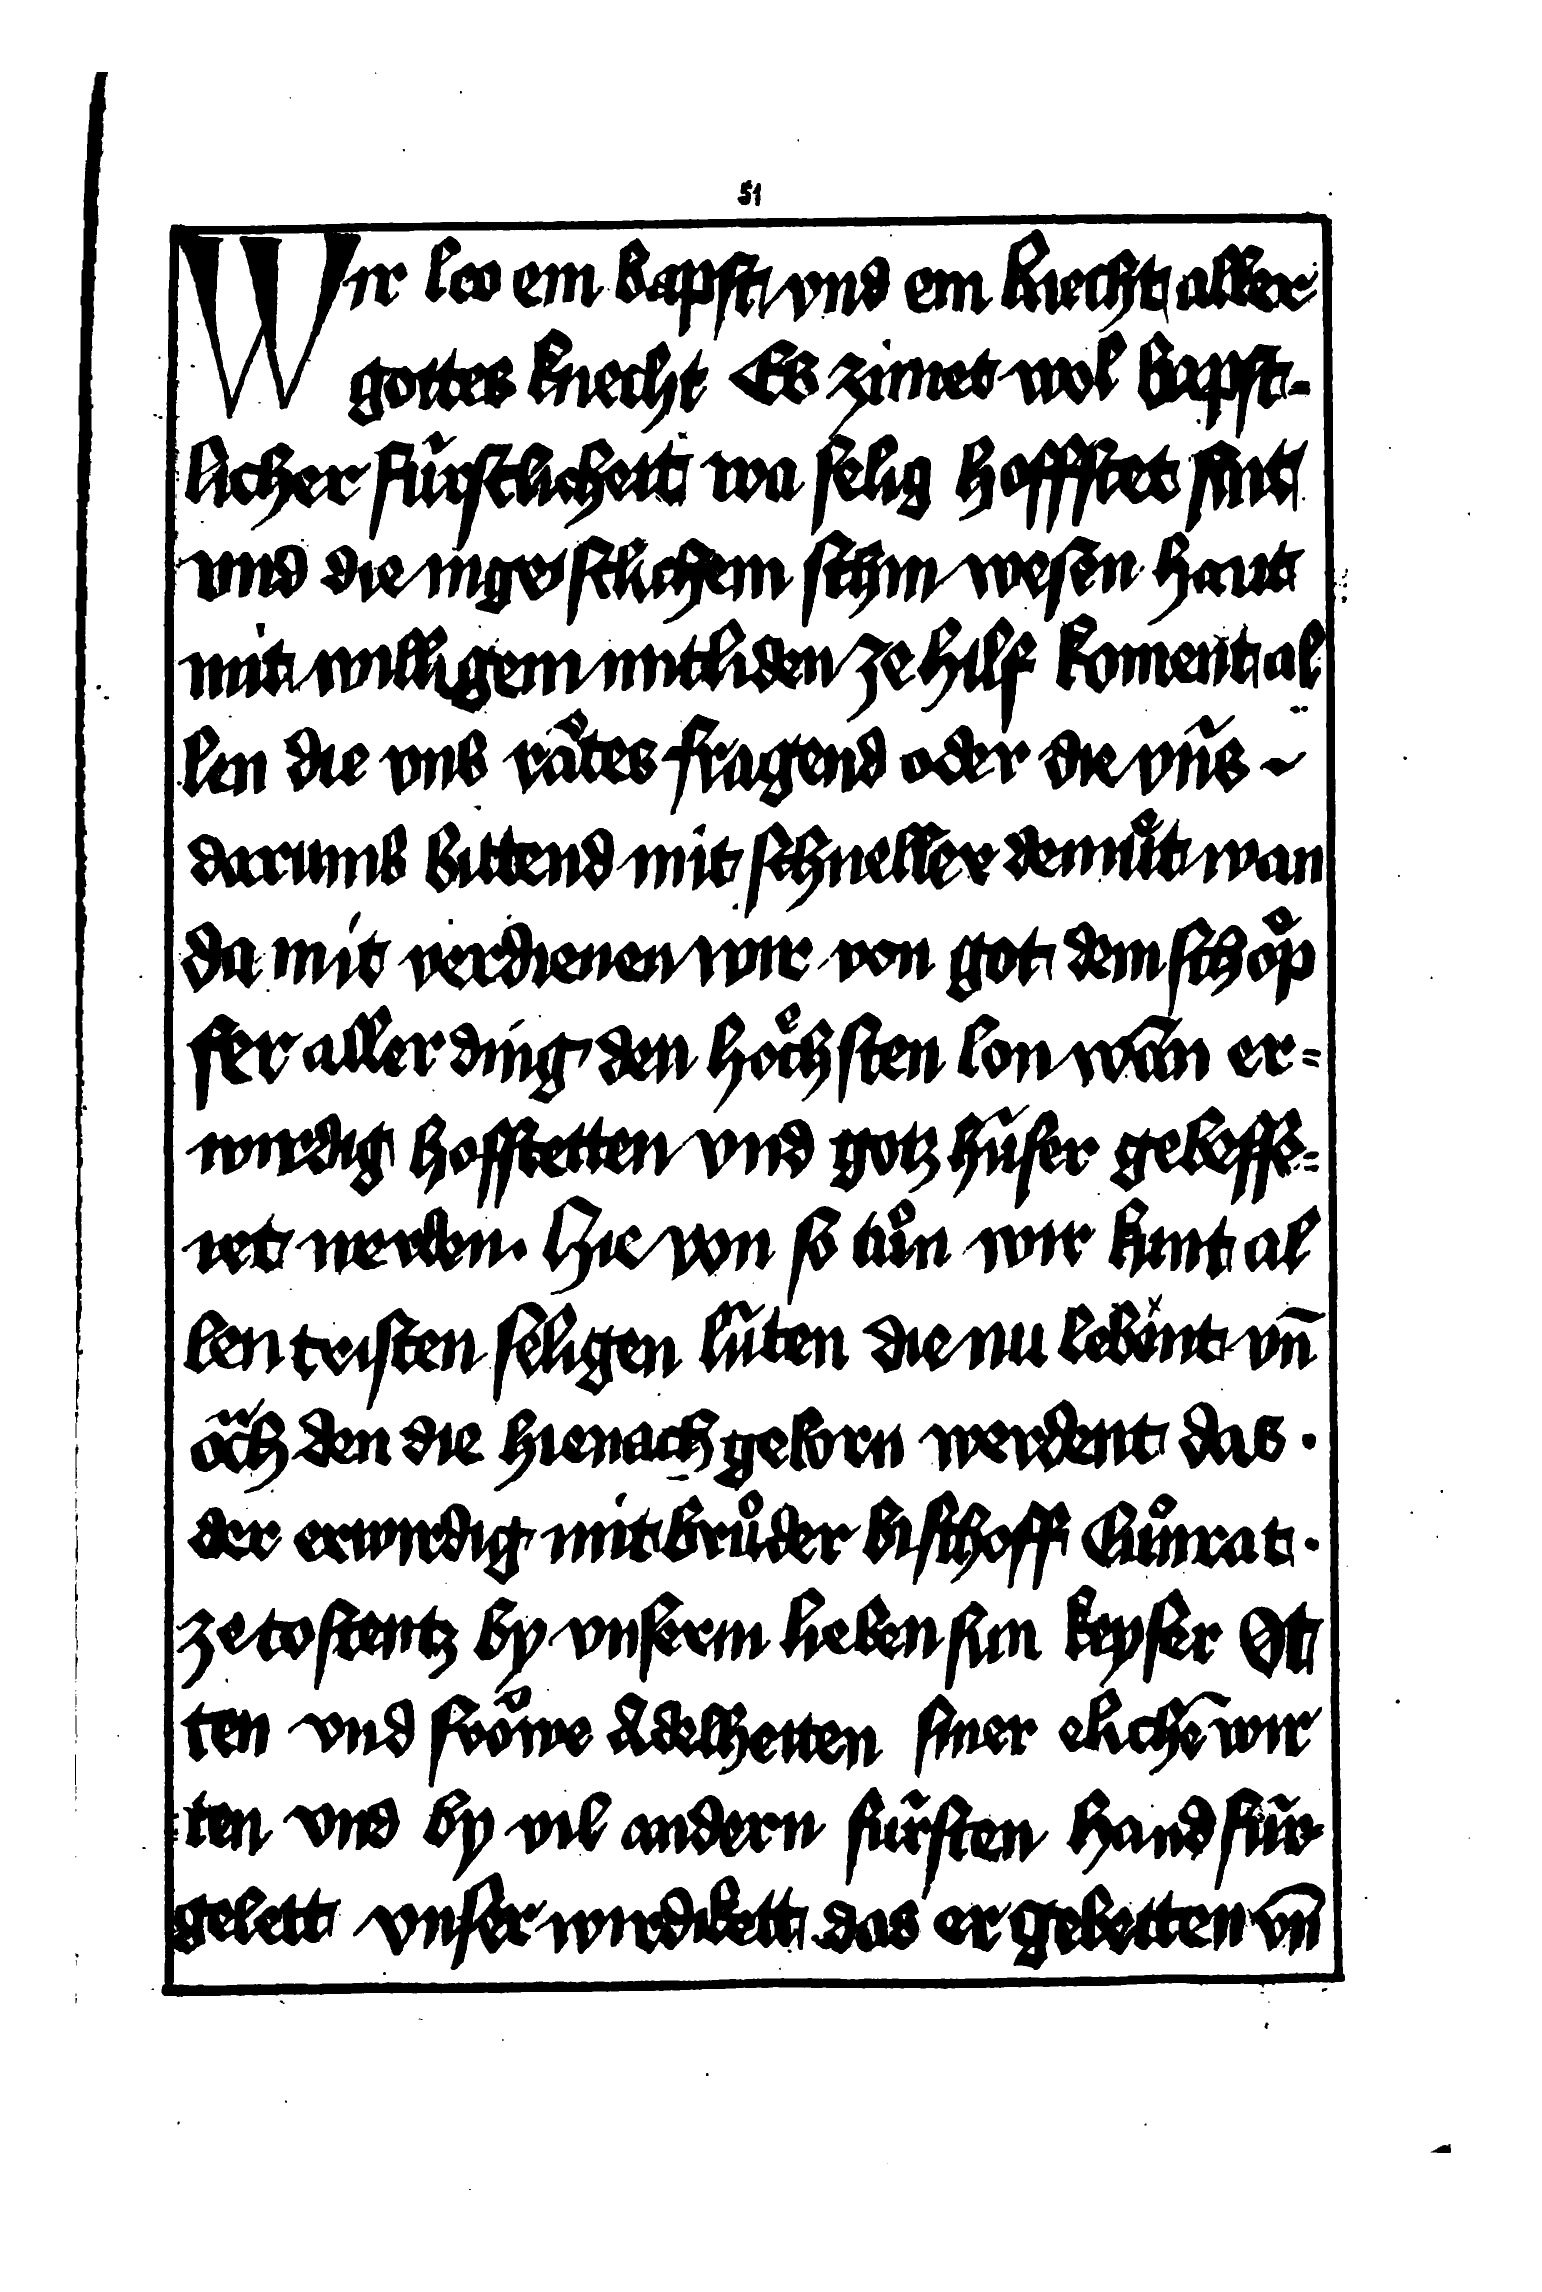 51
Wir leo ein bapst vnd ein knecht aller
gottes knecht Es zimet wol bapst-
licher fürstlicheit wa selig hoffstet sint
vnd die in geistlichem schin wesen haut
mit willigem mitliden ze hilf koment al
len die vns rätes fragend oder die vns ~
darumb bittend mit schneller demuͤt wan
da mit verdienen wir von got dem schoͤp
fer aller ding den hoͤchsten lon wān er=
wirdig hoffstetten vnd gotzhüser gebess=
ret werden. Hie von so tuͦn wir kunt al
len cristen seligen lüten die nu lebent vn̄
öch den die hienach geborn werdent das ·
der erwirdig mitbruͦder bischoff Cuͦnrat ·
ze costentz by vnserm lieben sun keyser Ot
ten vnd froͤwe Adelheiten siner elichē wir
ten vnd by vil andern fürsten hand für
gelett vnser wirdikett das er gebetten vn̄